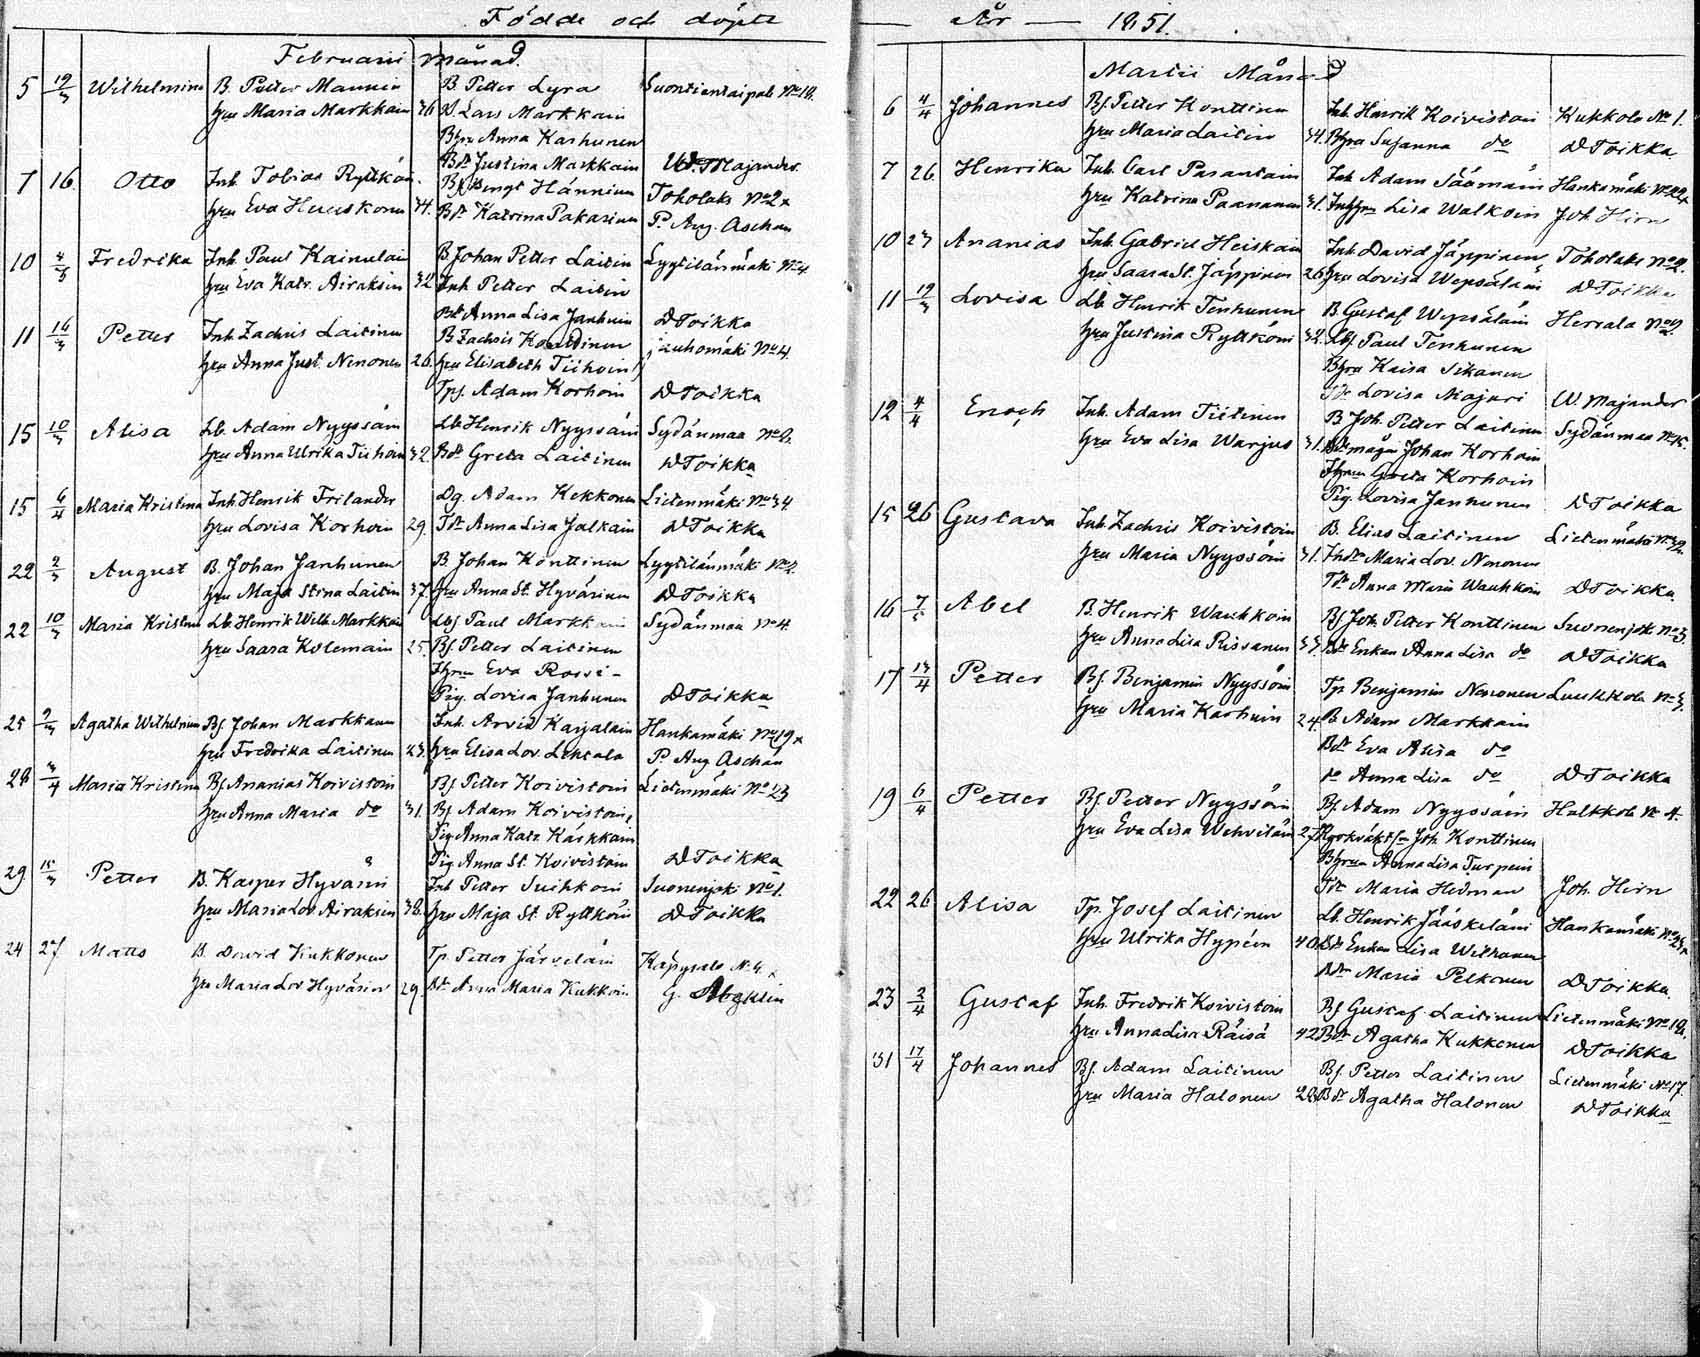 Födde och döpte
Februarii månad.
5 19/3 Wilhelmina B. Petter Mannin B. Petter Lyra Suontientaipale No 18.
hru Maria Markkain 36 D. Lars Markkain
Bhru Anna Karhunen
Bdr Justina Markkain W. Majander
7 16 Otto Inh. Tobias Rytkön Bf Bengt Hänninen Toholaks No 2 x
hru Eva Huuskonen 34. Bdr Katrina Pakarinen P. Aug. Aschan
10 4/3 Fredrika Inh. Paul Kainulain B Johan Petter Laitin Lyytilänmäki No 4
hru Eva Katr. Airaksin 32 Inh Petter Laitin
Bdr Anna Lisa Janhuin D Toikka
11 16/3 Petter Inh Zachris Laitinen B Zachris Konttinen Jauhomäki No 4.
hru Anna Just. Nenonen 26. hru Elisabeth Tiihoin
Tpf. Adam Korhoin D Toikka
15 10/3 Alisa Lb. Adam Nyyssöin Lb Henrik Nyyssöin Sydänmaa No 2.
hru Anna Ulrika Tiihoin 32. Bdr Greta Laitinen D Toikka
15 6/4 Maria Kristina Inh Henrik Frilander Dg. Adam Kekkonen Lietenmäki No 34
hru Lovisa Korhoin 29. Tdr Anna Lisa Jalkain D Toikka
22 2/3 August B. Johan Janhunen B. Johan Konttinen Lyytilänmäki No 2.
hru Maja Stina Laitin 37. hru Anna St. Hyvärinen D Toikka
22 10/3 Maria Kristina Lb. Henrik Wilh Markkain Lbf Paul Markkain Sydänmaa No 4.
hru Saara Kolemain 25. Bf. Petter Laitinen
Hru Eva Rossi-
Pig. Lovisa Janhunen D Toikka
25 9/3 Agatha Wilhelmina Bf. Johan Markkanen Inh. Arvid Karjalain Hankamäki No 19 x
hru Fredrika Laitinen 23. hru Elisa Lov. Lehtola P. Aug Aschan
28 3/4 Maria Kristina Bf. Ananias Koivistoin Bf. Petter Koivistoin Lietenmäki No 23
hru Anna Maria do 31. Bf Adam Koivistoin
Pig Anna Katr. Kärkkain
Pig Anna St. Koivistoin D Toikka
29 15/3 Petter B. Kasper Hyvärin Inh Petter Suihkoin Suonenjoki No 1.
hru Maria Lov Airaksin 38. hru Maja St. Rytkköin D Toikka
24 27 Matts B. David Kukkonen Tp. Petter Järveläin Käpysalo N. 4. x
hru Maria Lov Hyvärinen 29. Bdr Anna Maria Kukkoin G.
År 1851.
Martii Månad
6 4/4 Johannes Bf. Petter Konttinen Inh Henrik Koivistoin Kukkola No 1.
hru Maria Laitin 34. Bhru Susanna do D Toikka
7 26 Henrika Inh. Carl Parantain Inh Adam Säämäin Hankamäki No 22 x
hru Katrina Paananen 31. Inhhru Lisa Walkoin Joh Hirn
10 23 Ananias Inh. Gabriel Heiskain Inh. David Jäppinen Toholaks No 2.
hru Saara St. Jäppinen 26 hru Lovisa Wepsäläin D Toikka
11 19/3 Lovisa Lb. Henrik Tenhunen B Gustaf Wepsäläin Herrala No 2
hru Justina Rytköin 32. Lbf. Paul Tenhunen
Bhru Kaisa Sikanen
Tdr Lovisa Majuri W. Majander
12 4/4 Enoch Inh. Adam Tiitinen B Joh. Petter Laitinen Sydänmaa No 15.
hru Eva Lisa Warjus 31. Bdr mågen Johan Korhoin
Hrun Greta Korhoin
Pig. Lovisa Janhunen D Toikka
15 26 Gustava Inh Zachris Koivistoin B. Elias Laitinen Lietenmäki No 32
hru Maria Nyyssöin 31. Inhdr Maria Lov. Nenonen
Tdr Anna Maria Wauhkoin D Toikka
16 7/5 Abel B. Henrik Wauhkoin Bf Joh. Petter Konttinen Suonenjoki No 3.
hru Anna Lisa Rissanen 33. Bdr Enkan Anna Lisa do D Toikka
17 13/4 Petter Bf Benjamin Nyyssöin Tp Benjamin Nenonen Luukkola No 3
hru Maria Karhuin 24. B Adam Markkain
Bdr Eva Alisa do
do Anna Lisa do D Toikka
19 6/4 Petter Bf. Petter Nyyssöin Bf Adam Nyyssöin Hulkkola N 4.
hru Eva Lisa Wehviläin 27. Kyrkväkt fn Joh Konttinen
Bhrun Anna Lisa Turpein
Tdr Maria Hedman Joh. Hirn
22 26 Alisa Tp. Josef Laitinen Lb. Henrik Jääskeläin Hankamäki No 23 x
hru Ulrika Hypéin 40 Bdr Enkan Lisa Wilhunen
Bdr Maria Pelkonen D Toikka
23 2/4 Gustaf Inh. Fredrik Koivistoin Bf Gustaf Laitinen Lietenmäki No 18.
hru Anna Lisa Räisä 42 Bdr Agatha Kukkonen D Toikka
31 17/4 Johannes Bf. Adam Laitinen Bf. Petter Laitinen Lietenmäki No 17.
hru Maria Halonen 28 Bdr Agatha Halonen D Toikka